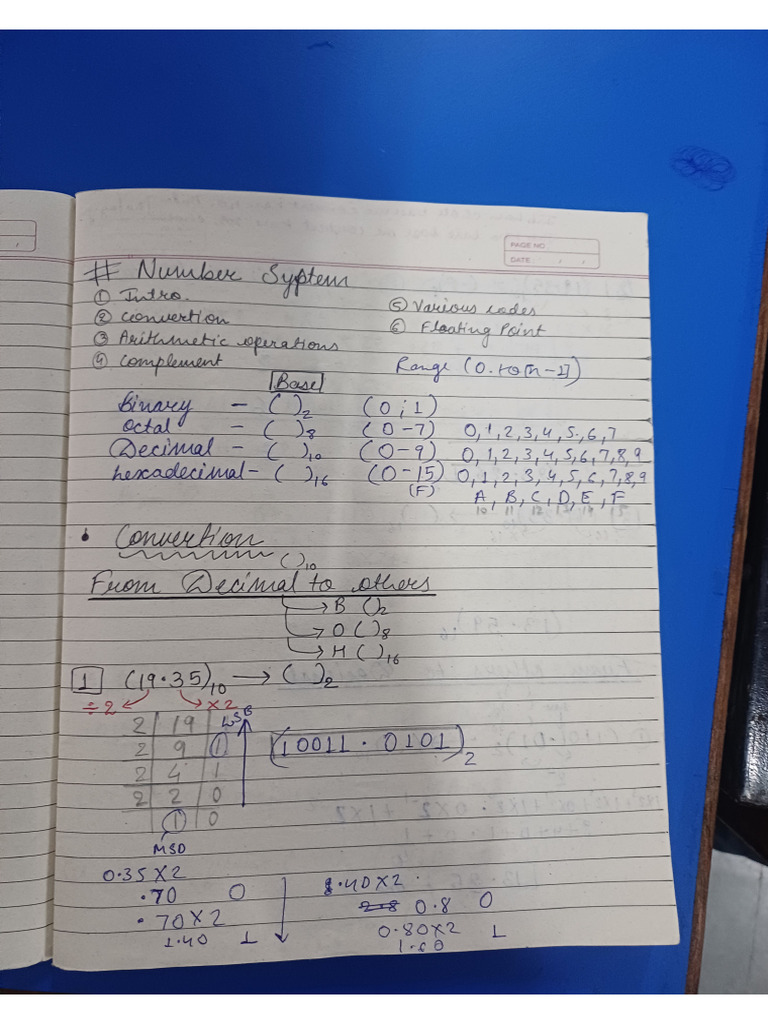 PAGE NO
DATE
# Number System
① Intro.
② Convertion
③ Arithmetic operations
④ Complement
⑤ Various codes
⑥ Floating Point
Range (0 to [n-1])
Base
Binary - ( )₂ (0, 1)
Octal - ( )₈ (0-7) 0,1,2,3,4,5,6,7
Decimal - ( )₁₀ (0-9) 0,1,2,3,4,5,6,7,8,9
hexadecimal - ( )₁₆ (0-15) 0,1,2,3,4,5,6,7,8,9
(F) A, B, C, D, E, F
10 11 12 13 14 15
• Convertion
( )₁₀
From Decimal to others
→ B ( )₂
→ O ( )₈
→ H ( )₁₆
1 (19.35)₁₀ → ( )₂
÷2 ×2
LSB
2 19
2 9 1
2 4 1
2 2 0
1 0
MSD
(10011.0101)₂
0.35 X 2
.70 0
.70 X 2
1.40 1
.40 X 2
0.8 0
0.80 X 2 1
1.60